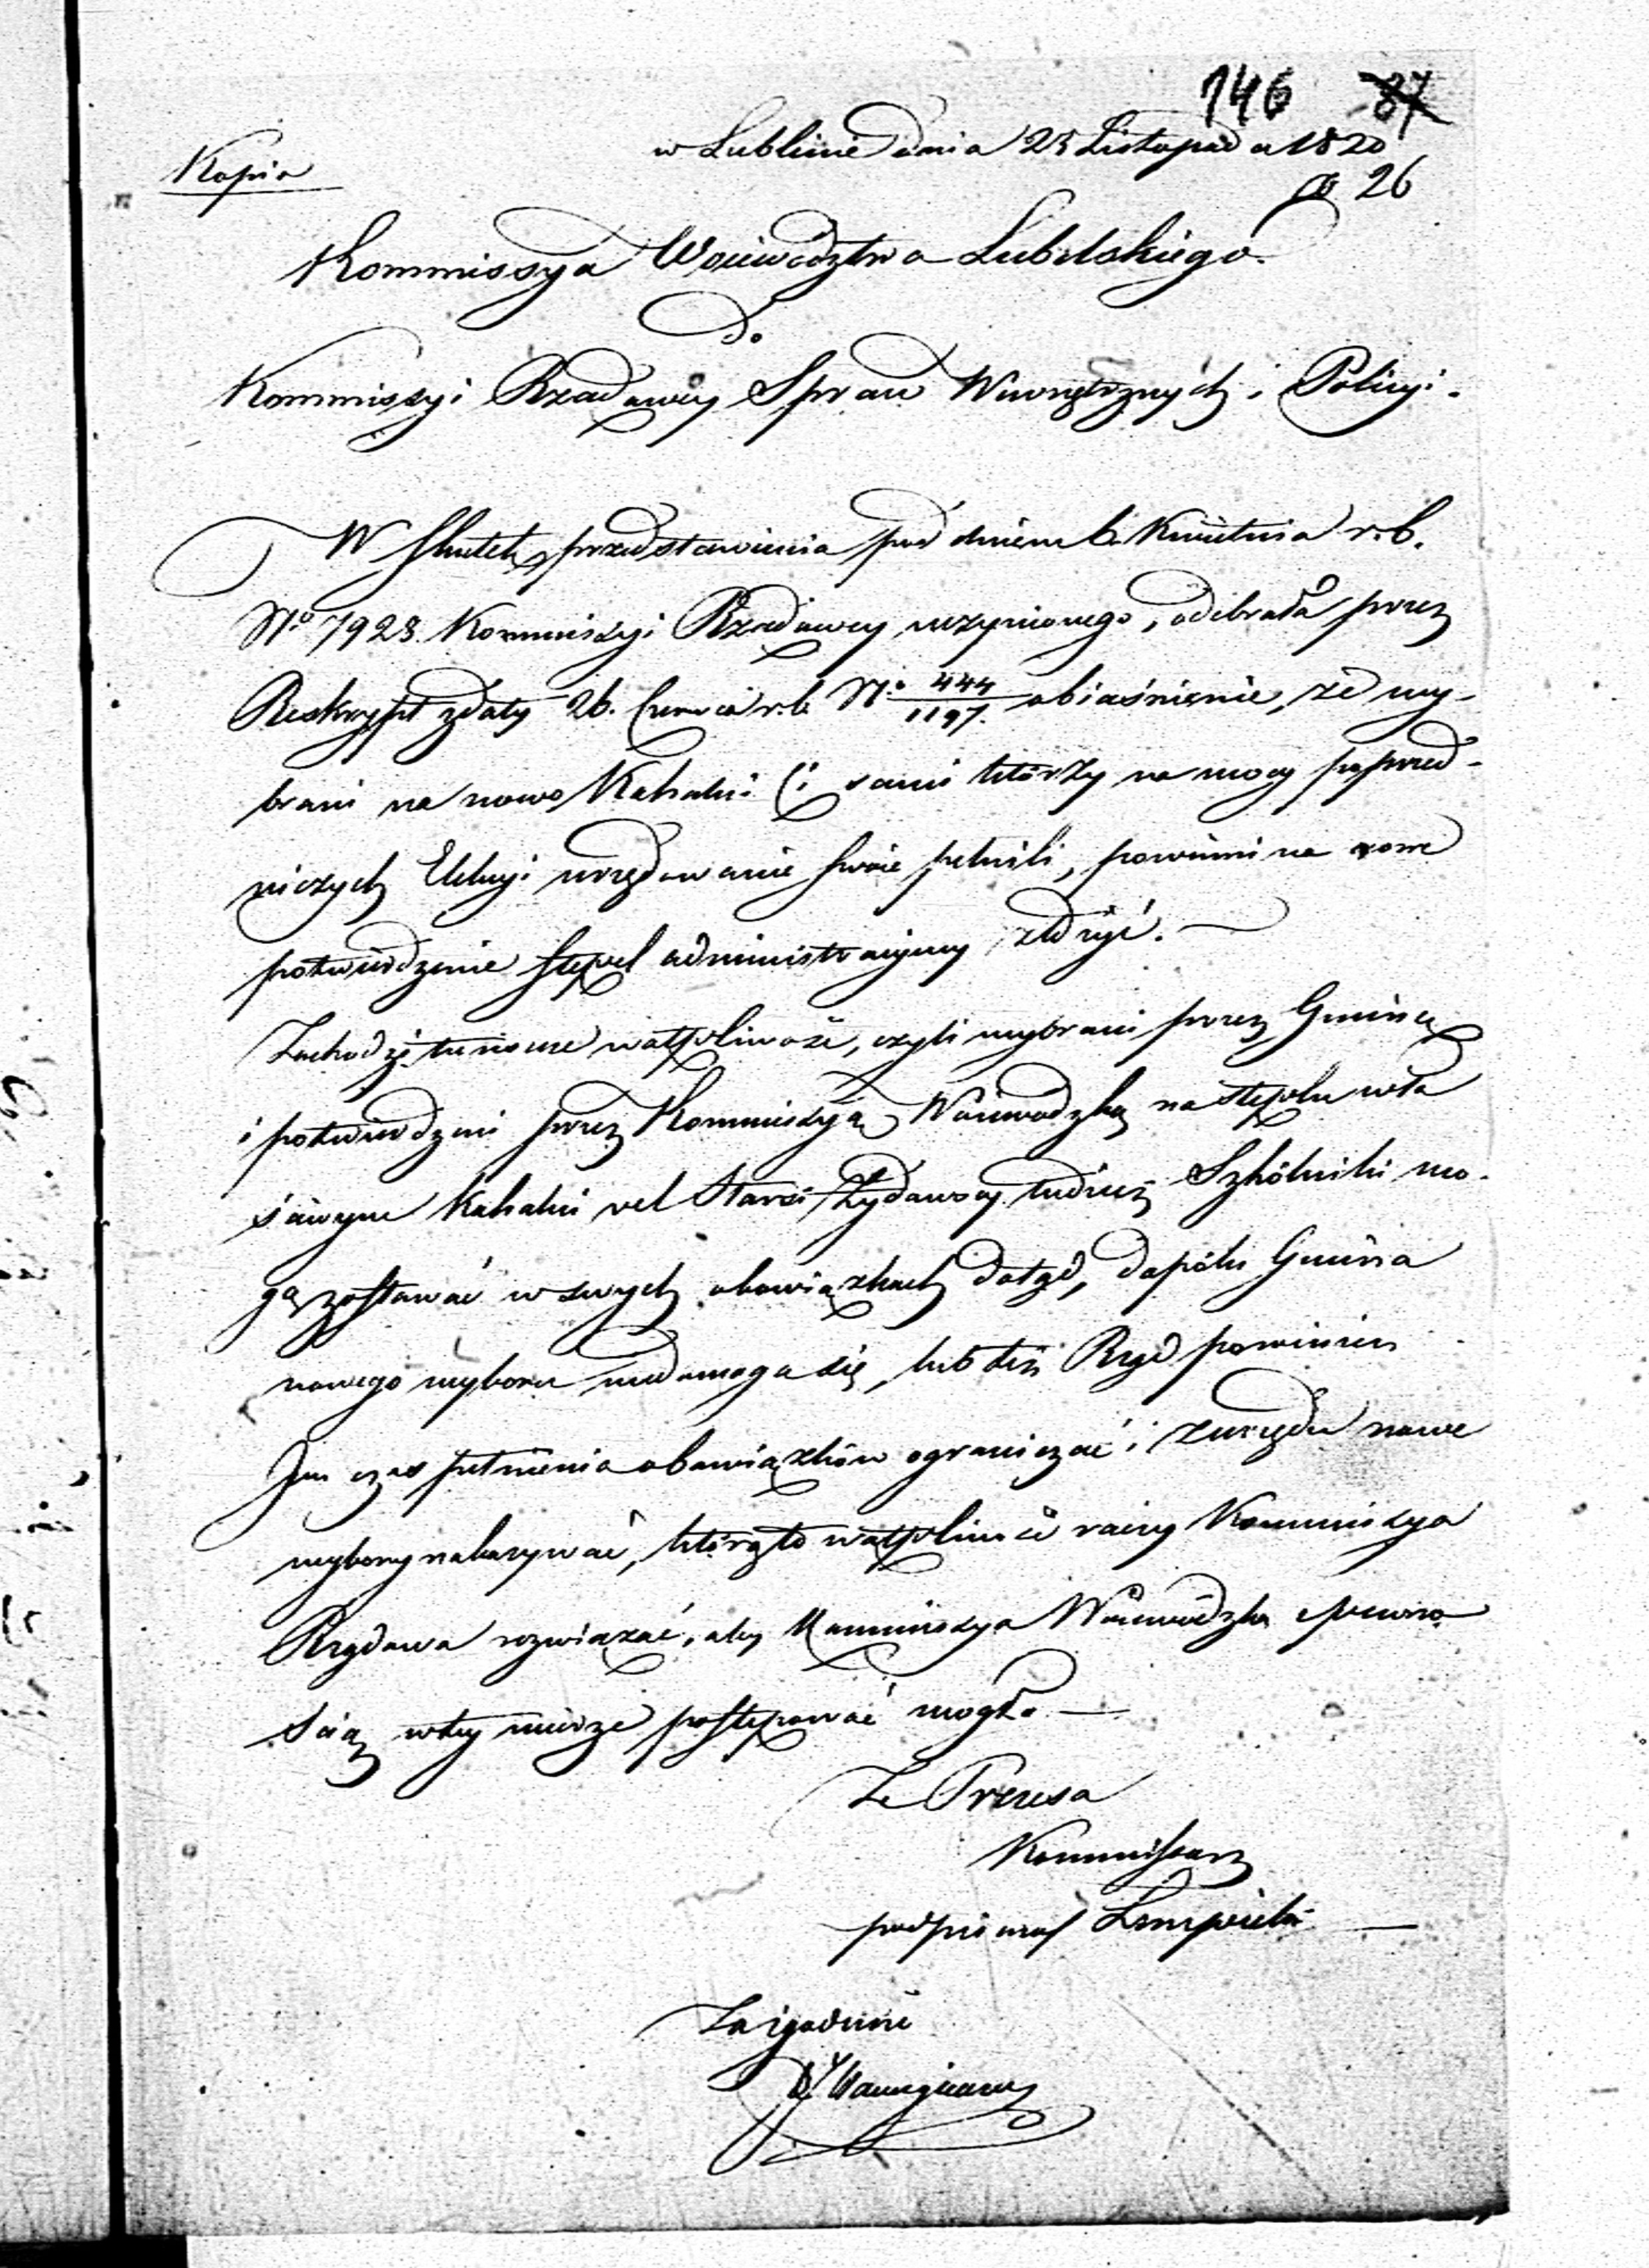 146 87
w Lublinie dnia 25 Listopada 1820
26
Kopia
Kommissya Woiewodztwa Lubelskiego
Do
Kommissyi Rządowey Spraw Wewnętrznych i Policyi.
W skutek przedstawienia pod dniem 6. Kwietnia r.b.
No 7928. Kommissyi Rządowey uczynionego, odebrała przez
Reskrypt z daty 26. Czerwca r.b. No. 444/1197. obiaśnienie, że wy-
brani na nowo Kahalni ci sami którzy na mocy poprzed-
niczych Elekcyi urzędowanie swoie pełnili, powinni na nowe
potwierdzenie stępel administracyiny złożyć.
Zachodzi tu ieszcze wątpliwość, czyli wybrani przez Gminę
i potwierdzeni przez Kommissyą Woiewodzką na stęplu wła
ściwym Kahalni vel Starsi Żydowscy tudzież Szkólniki mo-
gą zostawać w swych obowiązkach dotąd, dopóki Gmina
nowego wyboru niedomaga się, lub też Rząd powinien
Im czas pełnienia obowiązków ograniczać i z urzędu nowe
wybory nakazywać, którą to wątpliwość raczy Kommissya
Rządowa rozwiązać, aby Kommissya Woiewodzka z pewno
ścią w tey mierze postępować mogła.
Ze Prezesa
Kommissarz
podpisano Lempicki
Za zgodność